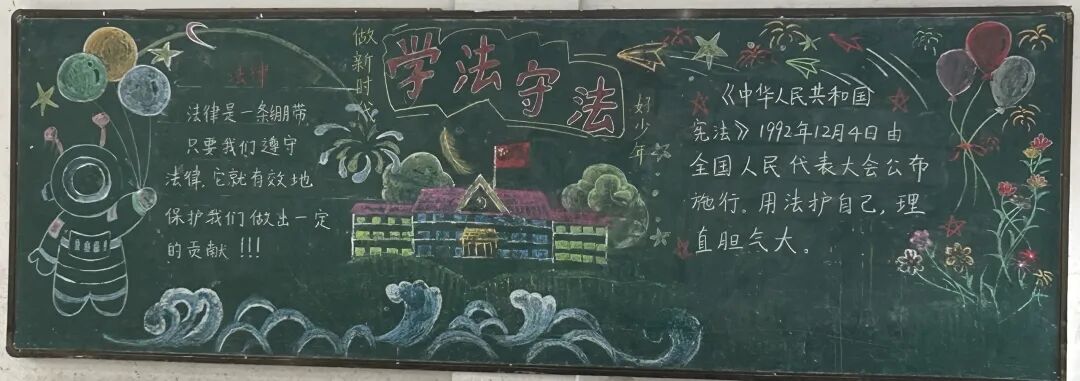 法律
法律是一条绷带,
只要我们遵守
法律,它就有效地
保护我们做出一定
的贡献!!!
做新时代
学法守法
好少年
《中华人民共和国
宪法》1992年12月4日由
全国人民代表大会公布
施行。用法护自己,理
直胆气大。